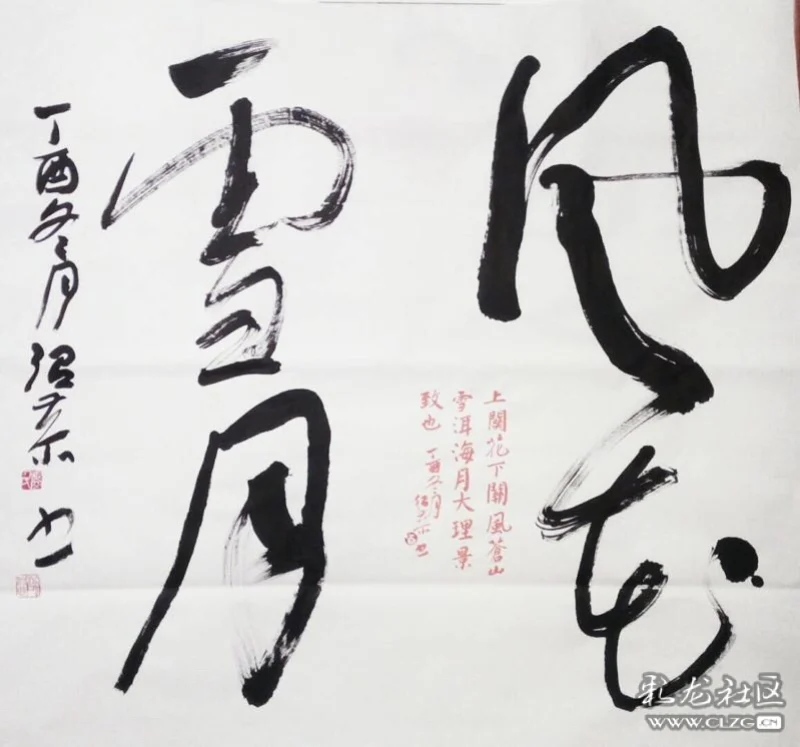 風花
雪月
上関花下關風蒼山
雪洱海月大理景
致也
丁酉冬月
丁酉冬月
书
彩龙社区
WWW.CLZG.CN